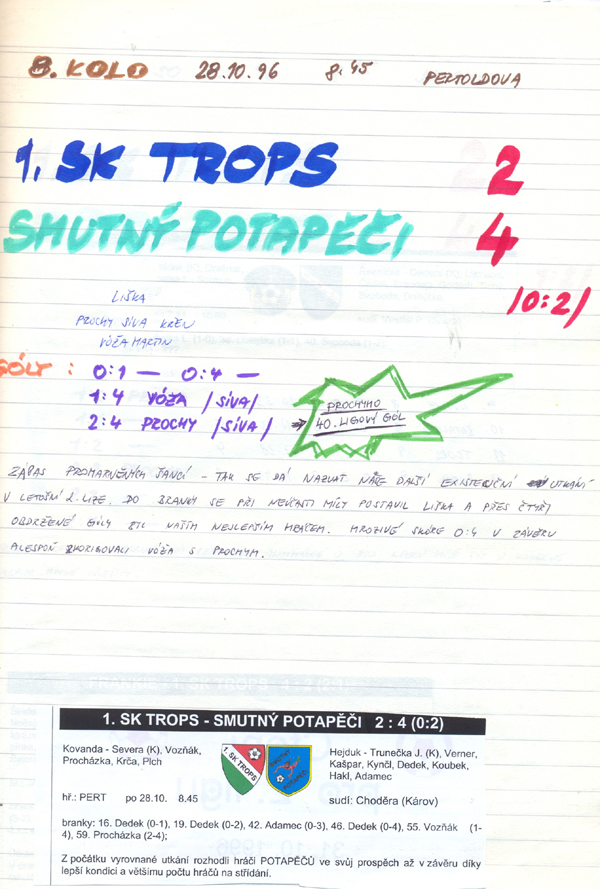 8. KOLO 28.10.96 8.45 PERTOLDOVA
1. SK TROPS 2
SMUTNÝ POTAPĚČI 4
/0:2/
LIŠKA
PROCHY SÍVA KŘEN
VÓŽA MARTIN
GÓLY : 0:1 — 0:4 —
1:4 VÓŽA /SÍVA/
2:4 PROCHY /SÍVA/
PROCHYHO
40. LIGOVÝ GÓL
ZÁPAS PROMARNĚNÝCH ŠANCÍ - TAK SE DÁ NAZVAT NAŠE DALŠÍ EXISTENČNÍ UTKÁNÍ
V LETOŠNÍ 2. LIZE. DO BRANKY SE PŘI NEÚČASTI MÍLY POSTAVIL LIŠKA A PŘES ČTYŘI
OBDRŽENÉ GÓLY BYL NAŠÍM NEJLEPŠÍM HRÁČEM. HROZIVÉ SKÓRE 0:4 V ZÁVĚRU
ALESPOŇ ZKORIGOVALI VÓŽA S PROCHYM.
1. SK TROPS - SMUTNÝ POTAPĚČI 2 : 4 (0:2)
Kovanda - Severa (K), Vozňák,
Procházka, Krča, Plch
1. SK TROPS
SMUTNÝ
POTAPĚČI
Hejduk - Trunečka J. (K), Verner,
Kašpar, Kynčl, Dedek, Koubek,
Hakl, Adamec
hř.: PERT po 28.10. 8.45
sudí: Choděra (Károv)
branky: 16. Dedek (0-1), 19. Dedek (0-2), 42. Adamec (0-3), 46. Dedek (0-4), 55. Vozňák (1-
4), 59. Procházka (2-4);
Z počátku vyrovnané utkání rozhodli hráči POTAPĚČŮ ve svůj prospěch až v závěru díky
lepší kondici a většímu počtu hráčů na střídání.